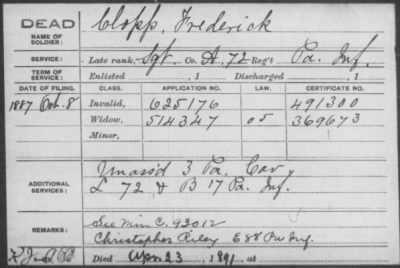 DEAD
NAME OF SOLDIER:
Clopp, Frederick
SERVICE:
Late rank, Sgt Co. A, 72 Reg't Pa. Inf.
TERM OF SERVICE:
Enlisted , 1 Discharged , 1
DATE OF FILING. CLASS. APPLICATION NO. LAW. CERTIFICATE NO.
1887 Oct. 8 Invalid, 625176 491300
Widow, 514347 05 369673
Minor,
ADDITIONAL SERVICES:
Unass'd 3 Pa. Cav
L 72 & B 17 Pa. Inf.
REMARKS:
See Min C. 93012
Christopher Riley E 88 Pa Inf.
Died Apr. 23 , 1891, at